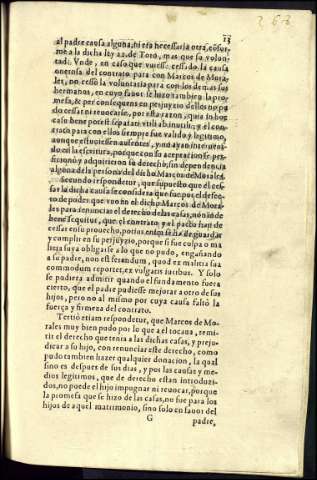 263
13
al padre causa alguna, ni era necessaria otra, cõfor-
me a la dicha ley 22. de Toro, mas que sa volun-
tad: Vnde, en caso que vuiesse cessado la causa
onerosa del contrato para con Marcos de Mora-
les, no cessò la voluntaria para con los demas sus
hermanos, en cuyo fauor se hizo tambien la pro-
mesa, & per consequens en perjuyzio dellos no pu
do cessar ni reuocarse, por esta razon, quia in hoc
caso bene potest separari vtil ab inutili, y el con-
trato para con ellos siempre fue valido y legitimo,
aunque estuuiessen ausentes, y no ayan interueni-
do en la escritura, porque con so aceptacion se per-
ficionò y adquirieron su derecho, sin dependencia
alguna de la persona del dicho Marcos de Morales.
Secundo respondetur, que supuesto que el ces-
sar la dicha causa se considera que fue por el defec-
to de poder que vuo en el dicho Marcos de Mora-
les para renunciar el derecho de las casas, non inde
bene sequitur, que el contrato y el pacto aya de
cessar en su prouecho, potius enim se ha de guardar
y cumplir en su perjuyzio, porque si fue culpa o ma
licia suya obligarse a lo que no pudo, engañando
a su padre, non est ferendum, quod ex malitia sua
commodum reportet, ex vulgatis iuribus. Y solo
se pudiera admitir quando el fundamento fuera
cierto, que el padre pudiesse mejorar a otro de sus
hijos, pero no al mismo por cuya causa faltò la
fuerça y firmeza del contrato.
Tertiò etiam respondetur, que Marcos de Mo-
rales muy bien pudo por lo que a el tocaua, remi-
tir el derecho que tenia a las dichas casas, y perju-
dicar a su hijo, con renunciar este derecho, como
pudo tambien hazer qualquier donacion, la qual
sino es despues de sus dias, y por las causas y me-
dios legitimos, que de derecho estan introduzi-
dos, no puede el hijo impugnar ni reuocar, porque
la promesa que se hizo de las casas, no fue para los
hijos de aquel matrimonio, sino solo en fauor del
G
padre,